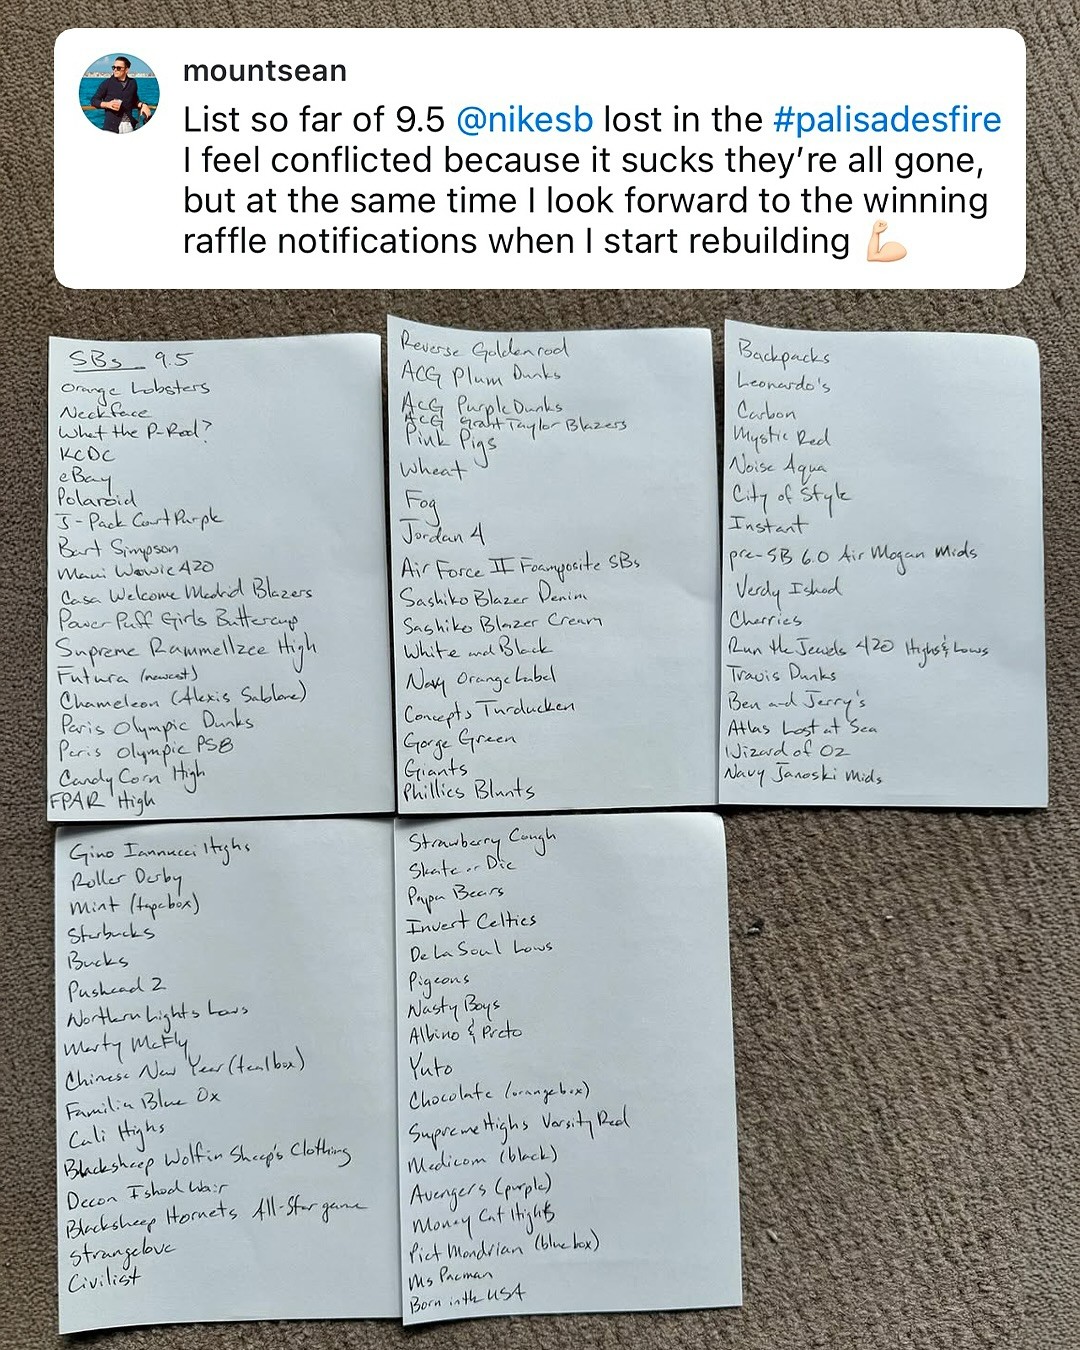 mountsean
List so far of 9.5 @nikesb lost in the #palisadesfire
I feel conflicted because it sucks they're all gone,
but at the same time I look forward to the winning
raffle notifications when I start rebuilding 💪🏻
SBs 9.5
Orange Lobsters
Neckface
What the P-Rod?
KCDC
eBay
Polaroid
J-Pack Court Purple
Bart Simpson
Maui Wowie 420
Casa Welcome Madrid Blazers
Power Puff Girls Buttercup
Supreme Rammellzee High
Futura (newest)
Chameleon (Alexis Sablone)
Paris Olympic Dunks
Paris Olympic PS8
Candy Corn High
FPAR High
Reverse Goldenrod
ACG Plum Dunks
ACG Purple Dunks
ACG Grant Taylor Blazers
Pink Pigs
Wheat
Fog
Jordan 4
Air Force II Foamposite SBs
Sashiko Blazer Denim
Sashiko Blazer Cream
White and Black
Navy Orange Label
Concepts Turducken
Gorge Green
Giants
Phillies Blunts
Backpacks
Leonardo's
Carbon
Mystic Red
Noise Aqua
City of Style
Instant
pre-SB 6.0 Air Mogan Mids
Verdy Ishod
Cherries
Run the Jewels 420 Highs & Lows
Travis Dunks
Ben and Jerry's
Atlas Lost at Sea
Wizard of Oz
Navy Janoski Mids
Gino Iannucci Highs
Roller Derby
Mint (tapebox)
Starbucks
Bucks
Pushead 2
Northern Lights Lows
Marty McFly
Chinese New Year (tealbox)
Familia Blue Ox
Cali Highs
Blacksheep Wolf in Sheep's Clothing
Decon Ishod Wair
Blacksheep Hornets All-Star game
Strangelove
Civilist
Strawberry Cough
Skate or Die
Papa Bears
Invert Celtics
De La Soul Lows
Pigeons
Nasty Boys
Albino & Preto
Yuto
Chocolate (orangebox)
Supreme Highs Varsity Red
Medicom (black)
Avengers (purple)
Money Cat Highs
Piet Mondrian (bluebox)
Ms Pacman
Born in the USA